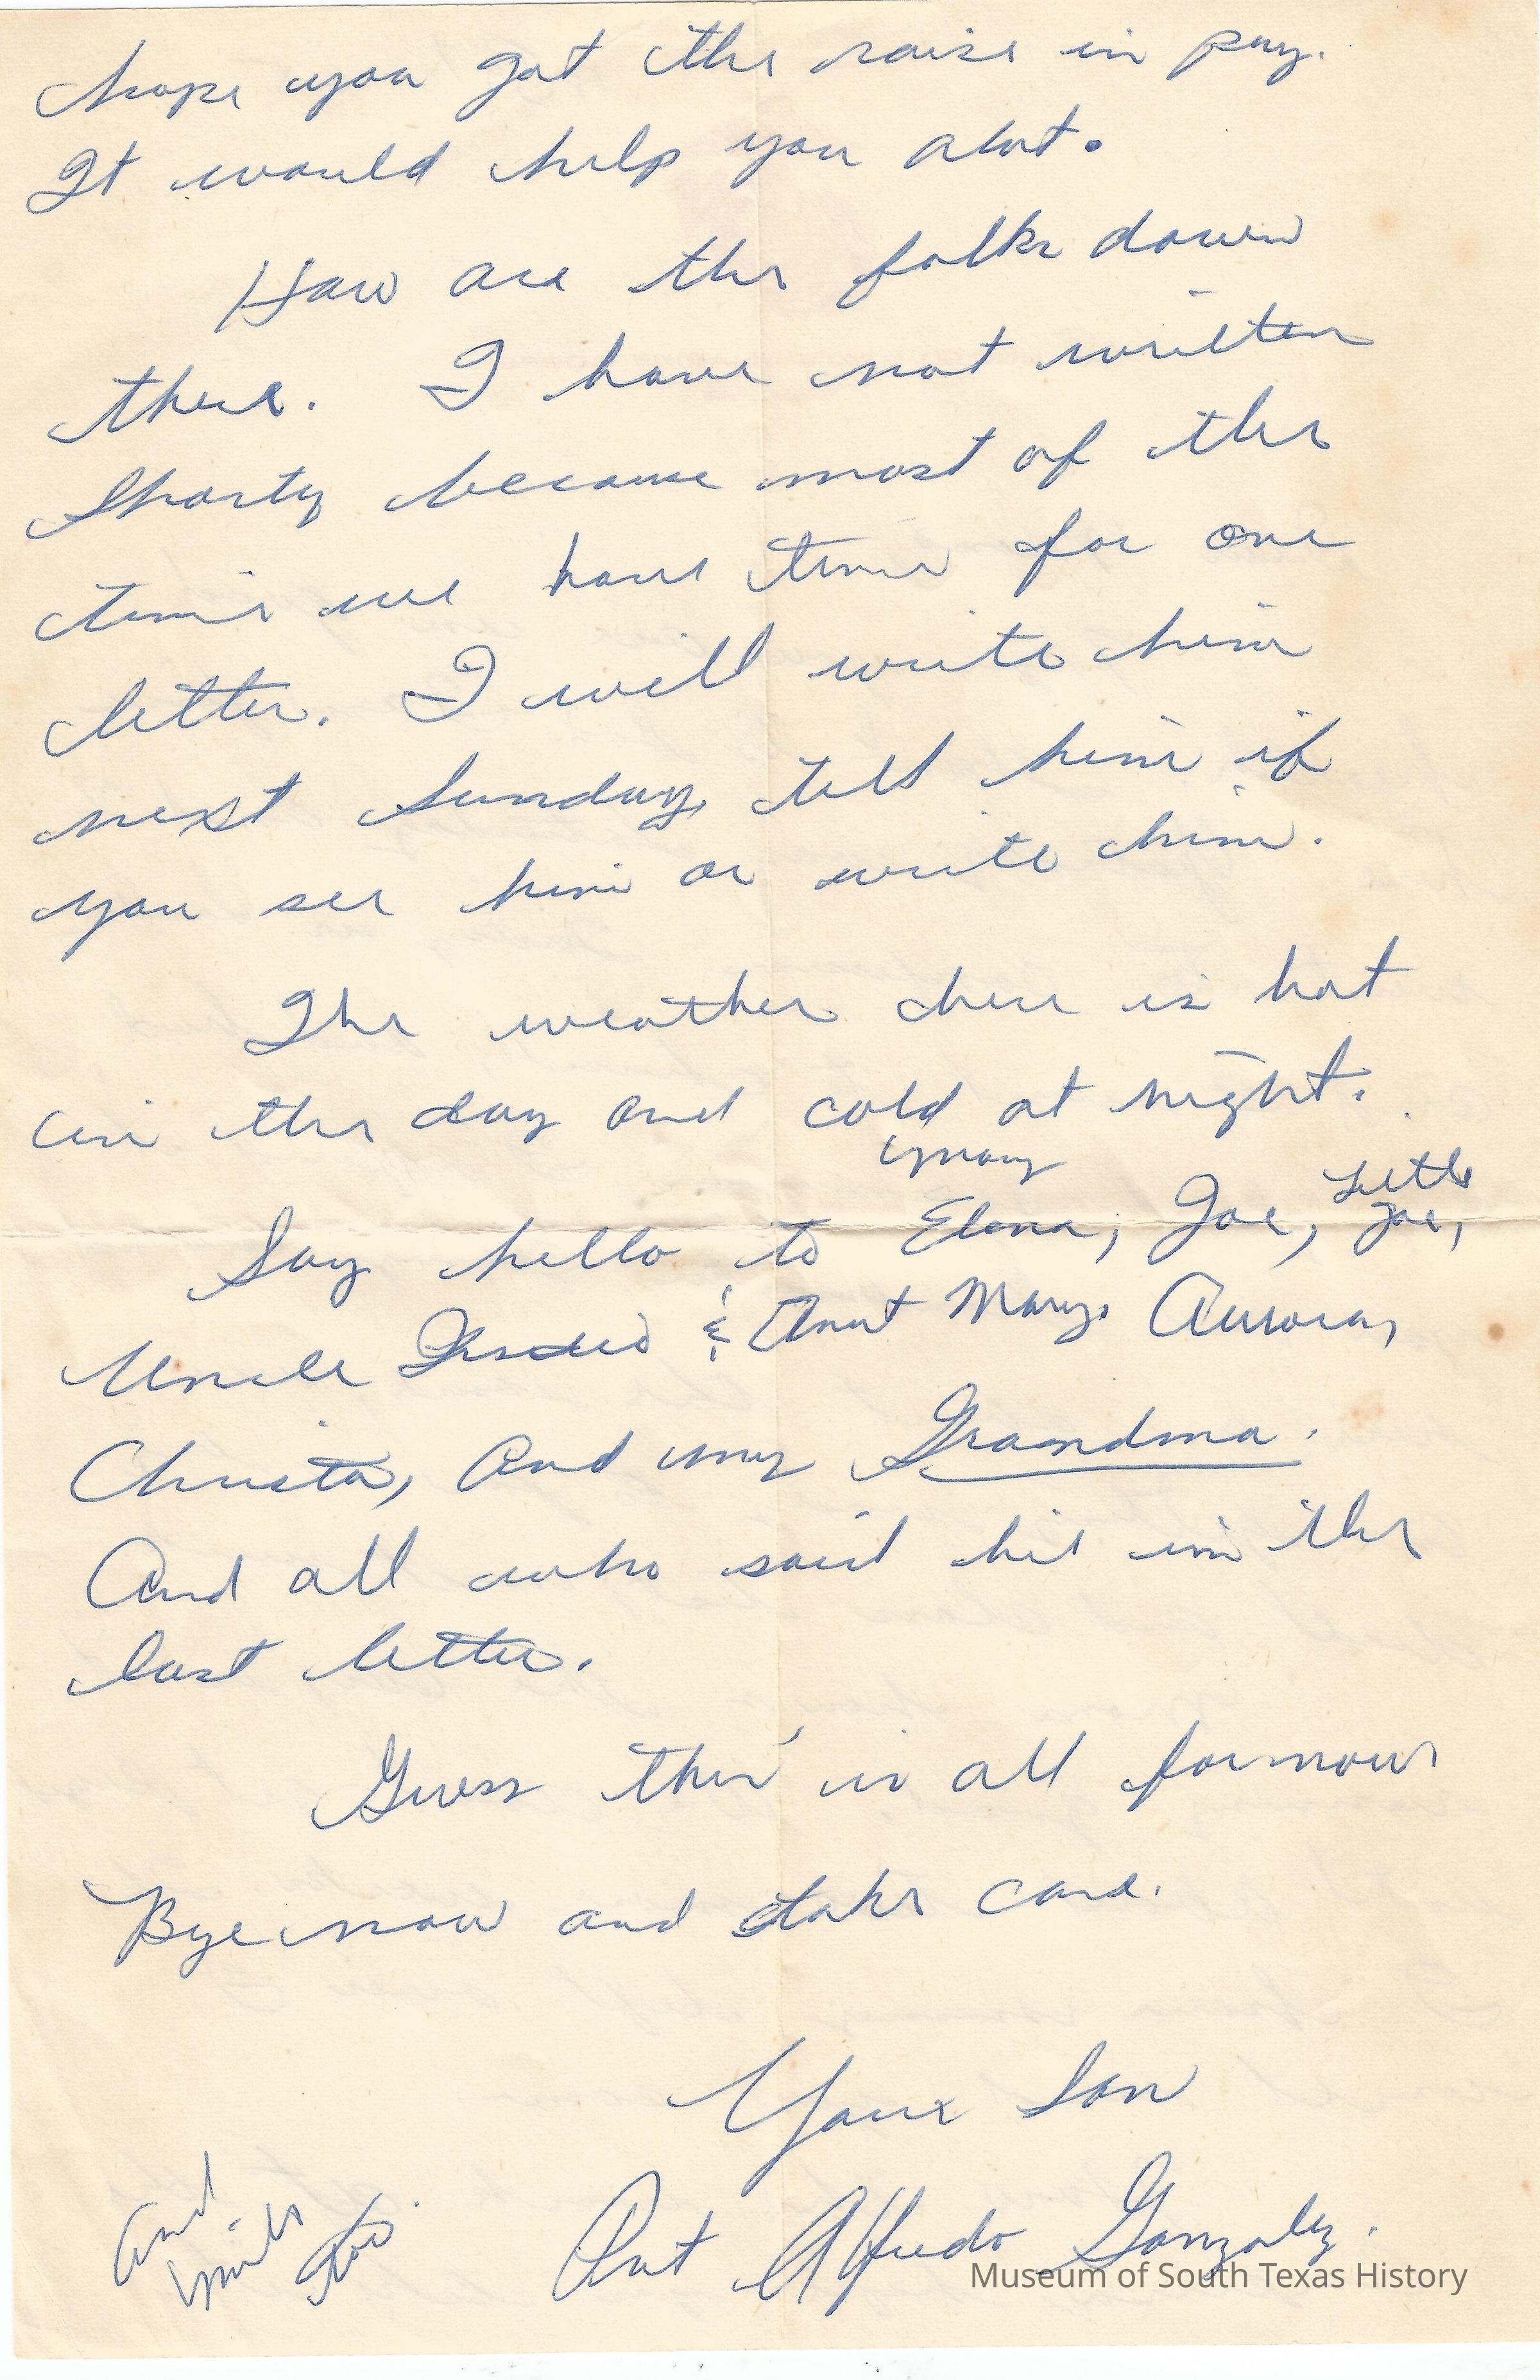 hope you got the raise in pay.
It would help you alot.
How are the folks down
there. I have not written
Shorty because most of the
time we have time for one
letter. I will write him
next Sunday, tell him if
you see him or write him.
The weather here is hot
in the day and cold at night.
Say hello to Elena, Joe, Little Joe,
Uncle & Aunt Mary. Aurora,
Christa, and my Grandma.
And all who said hi in the
last letter.
Guess this is all for now
Bye now and take care.
Your Son
Pvt Alfredo Gonzalez.
and
too.
Museum of South Texas History